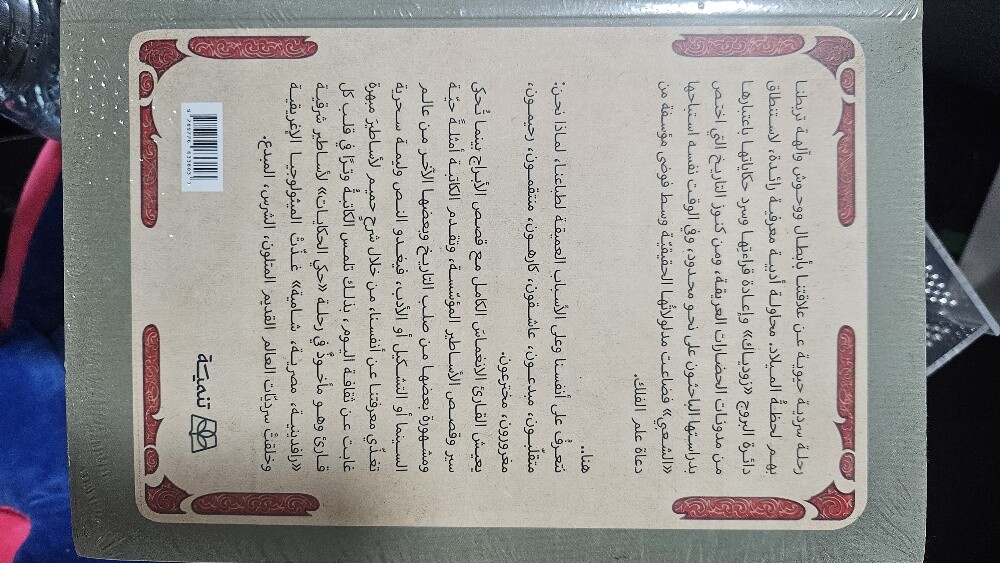 رحلة سردية حيوية عن علاقتنا بأبطال ووحوش وآلهة تربطنا
بهم لحظةُ الميلاد. محاولة أدبية معرفية رائدة، لاستنطاق
دائرة البروج «زودياك» وإعادة قراءتها وسرد حكاياتها باعتبارها
من مدونات الحضارات العريقة، ومن كنوز التاريخ التي اختص
بدراستها الباحثون على نحو محدود، وفي الوقت نفسه استباحها
«الشعبي» فضاعت مدلولاتُها الحقيقيّة وسط فوضى مؤسفة من
دعاة علم الفلك.
هنا..
نتعرفُ على أنفسنا وعلى الأسباب العميقة لطباعنا، لماذا نحن:
متقلّبون، مبدعون، عاشقون، كارهون، منتقمون، رحيمون،
مغرورون، مخترعون.
يعيش القارئ الانغماسَ الكامل مع قصص الأبراج بينما تُحكى
سير وقصص الأساطير المؤسِّسة، وتقدم الكاتبة أمثلةً حيّة
ومشهورة بعضها من صلب التاريخ وبعضها الآخر من عالم
السينما أو التشكيل أو الأدب، فيغدو النص وليمة سحرية
تغذّي معرفتنا عن أنفسنا، من خلال شرحٍ حميم لأساطيرَ مبهرة
غابت عن ثقافة اليوم، بذلك تلمس الكاتبةُ وترًا في قلب كل
قارئ وهو مأخوذٌ في رحلة «حكي الحكايات» لأساطير شرقية
«رافدينية، مصرية، شامية» غذّتْ الميثولوجيا الإغريقية
وخلقتْ سرديّات العالم القديم المتلون، الشرس، المبدع.
تنميّة